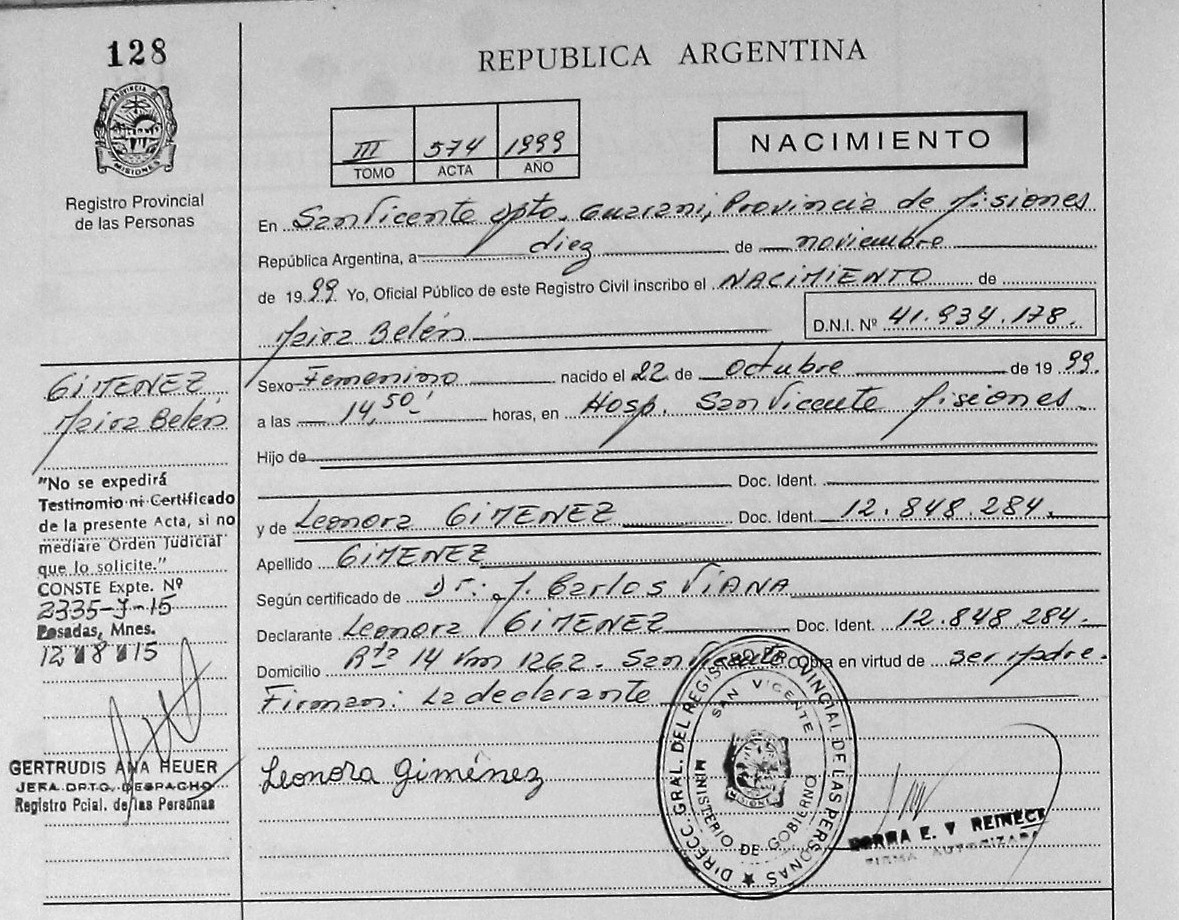 128
REPUBLICA ARGENTINA
PROVINCIA
MISIONES
Registro Provincial
de las Personas
III 574 1999
TOMO ACTA AÑO
NACIMIENTO
En San Vicente Dpto. Guarani, Provincia de Misiones
República Argentina, a diez de noviembre
de 1999 Yo, Oficial Público de este Registro Civil inscribo el NACIMIENTO de
Maira Belén D.N.I. Nº 41.934.178.
GIMENEZ
Maira Belén
"No se expedirá
Testimonio ni Certificado
de la presente Acta, si no
mediare Orden Judicial
que lo solicite."
CONSTE Expte. Nº
2335-J-15
Posadas, Mnes.
12 8 15
GERTRUDIS ANA HEUER
JEFA DPTO. DESPACHO
Registro Pcial. de las Personas
Sexo Femenino nacido el 22 de octubre de 1999.
a las 14,50' horas, en Hosp. San Vicente Misiones.
Hijo de
Doc. Ident.
y de Leonora GIMENEZ Doc. Ident. 12.848.284.
Apellido GIMENEZ
Según certificado de Dr. J. Carlos VIANA
Declarante Leonora GIMENEZ Doc. Ident. 12.848.284.
Domicilio Rta 14 Km 1262. San Vicente Obra en virtud de ser Madre.
Firman: La declarante
Leonora Giménez
DIRECC. GRAL. DEL REGISTRO PROVINCIAL DE LAS PERSONAS
SAN VICENTE
MINISTERIO DE GOBIERNO
E. V REINECK
FIRMA AUTORIZADA